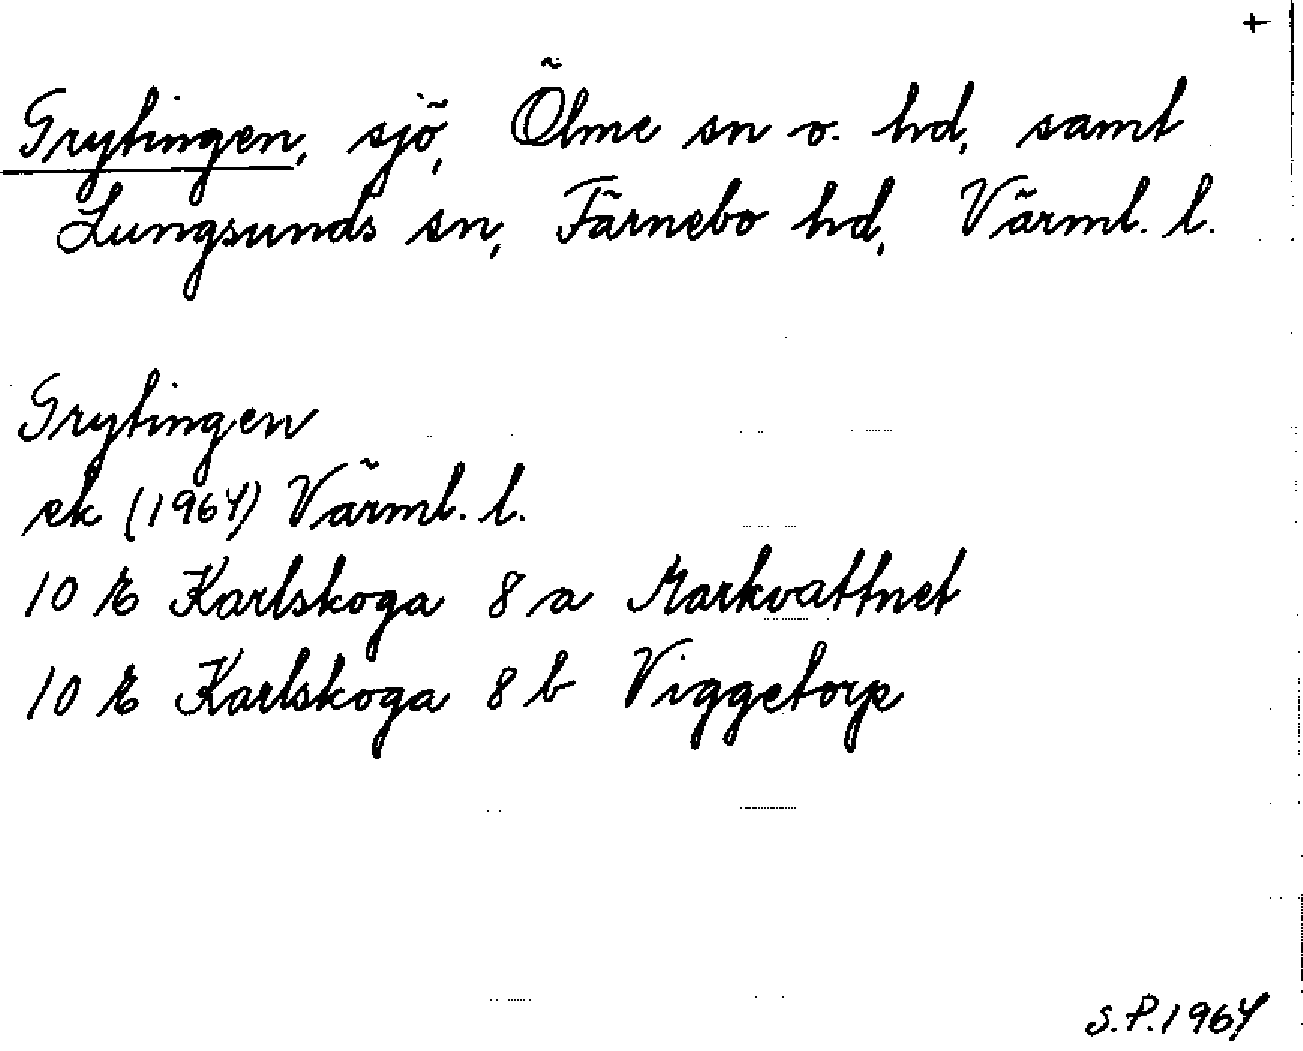 +
Grytingen, sjö, Ölme sn o. hd, samt
Lungsunds sn, Färnebo hd, Värml. l.
Grytingen
ek (1964) Värml. l.
10 E Karlskoga 8 a Markvattnet
10 E Karlskoga 8 b Viggetorp
S.P. 1964